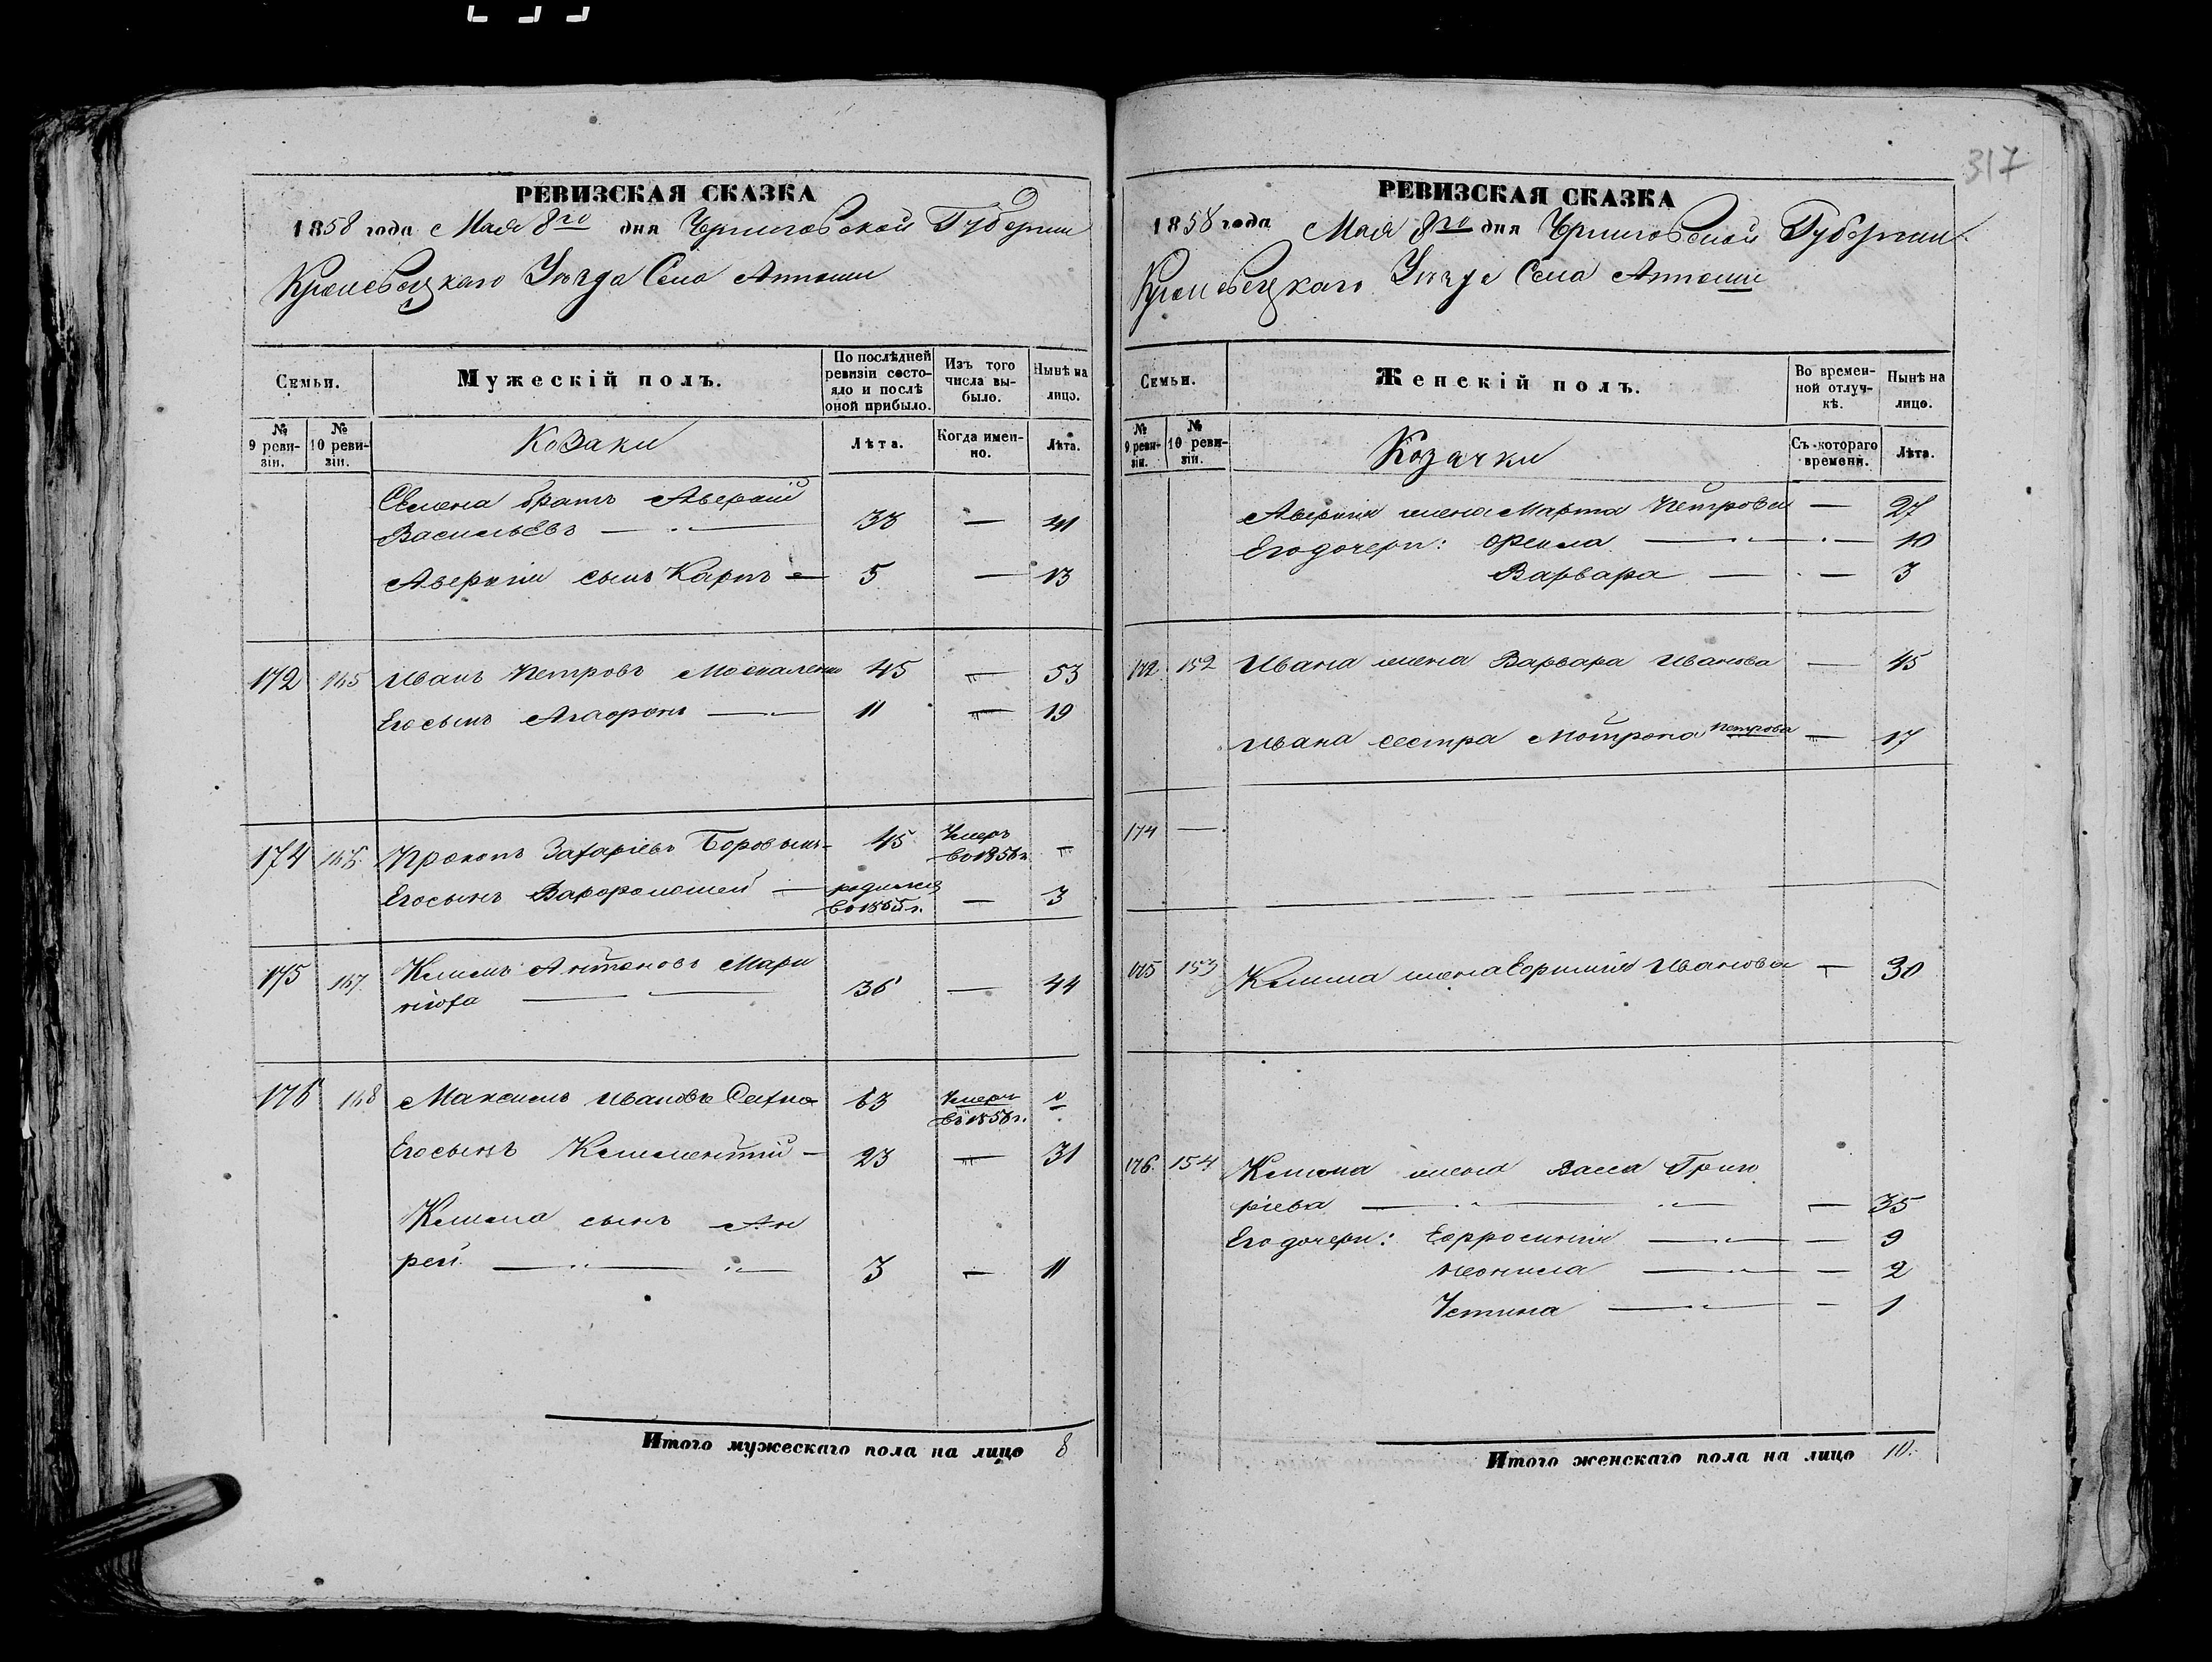 317
РЕВИЗСКАЯ СКАЗКА
1858 года Мая 8го дня Черниговской Губернии
Кролевецкаго Уѣзда Села Алтыновки
Семьи.
Мужескій полъ.
По послѣдней ревизіи состояло и послѣ оной прибыло.
Изъ того числа выбыло.
Нынѣ на лицо.
№ 9 ревизіи.
№ 10 ревизіи.
Козаки
Лѣта.
Когда именно.
Лѣта.
Семена братъ Аверкій
Васильевъ — 33 — 41
Аверкія сынъ Карпъ — 5 — 13
172 165 Иванъ Петровъ Москаленко 45 — 53
Его сынъ Агафонъ — 11 — 19
174 166 Прокопъ Захаріевъ Боровикъ 45 Умеръ
во 1856 г. —
Его сынъ Варфоломей — родился
во 1855 г. — 3
175 167 Климъ Антоновъ Мари
нюха — 36 — 44
176 168 Максимъ Ивановъ Сахно 63 Умеръ
во 1856 г.
Его сынъ Климентій — 23 — 31
Клима сынъ Ан
рей — 3 — 11
Итого мужескаго пола на лицо 8
РЕВИЗСКАЯ СКАЗКА
1858 года Мая 8го дня Черниговской Губернии
Кролевецкаго Уѣзда Села
Семьи.
Женскій полъ.
Во временной отлучкѣ.
Нынѣ на лицо.
№ 9 ревизіи.
№ 10 ревизіи.
Козачки
Съ котораго времени.
Лѣта.
Аверкія жена Марта Петрова — 27
Его дочери: — 10
Варвара — 3
172 152 Ивана жена Варвара Иванова — 45
Ивана сестра Мотрона Петрова — 17
174 —
175 153 Клима жена Иванова — 30
176. 154 Клима жена Васса Григо
ріева — 35
Его дочери: Ефросинія — 9
Неонила — 2
Устина — 1
Итого женскаго пола на лицо 10.